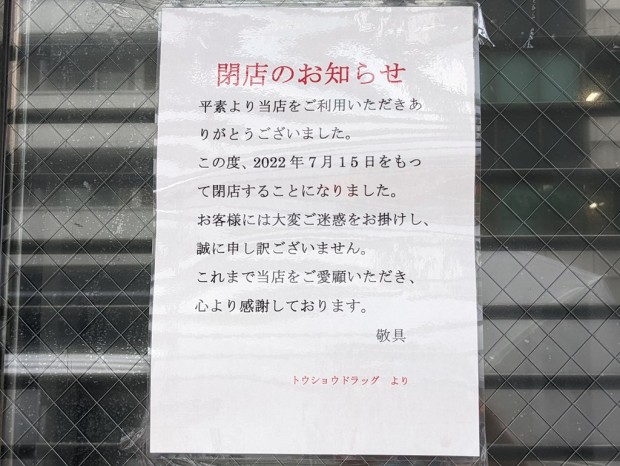 閉店のお知らせ
平素より当店をご利用いただきあ
りがとうございました。
この度、2022年7月15日をもっ
て閉店することになりました。
お客様には大変ご迷惑をお掛けし、
誠に申し訳ございません。
これまで当店をご愛顧いただき、
心より感謝しております。
敬具
トウショウドラッグ　より